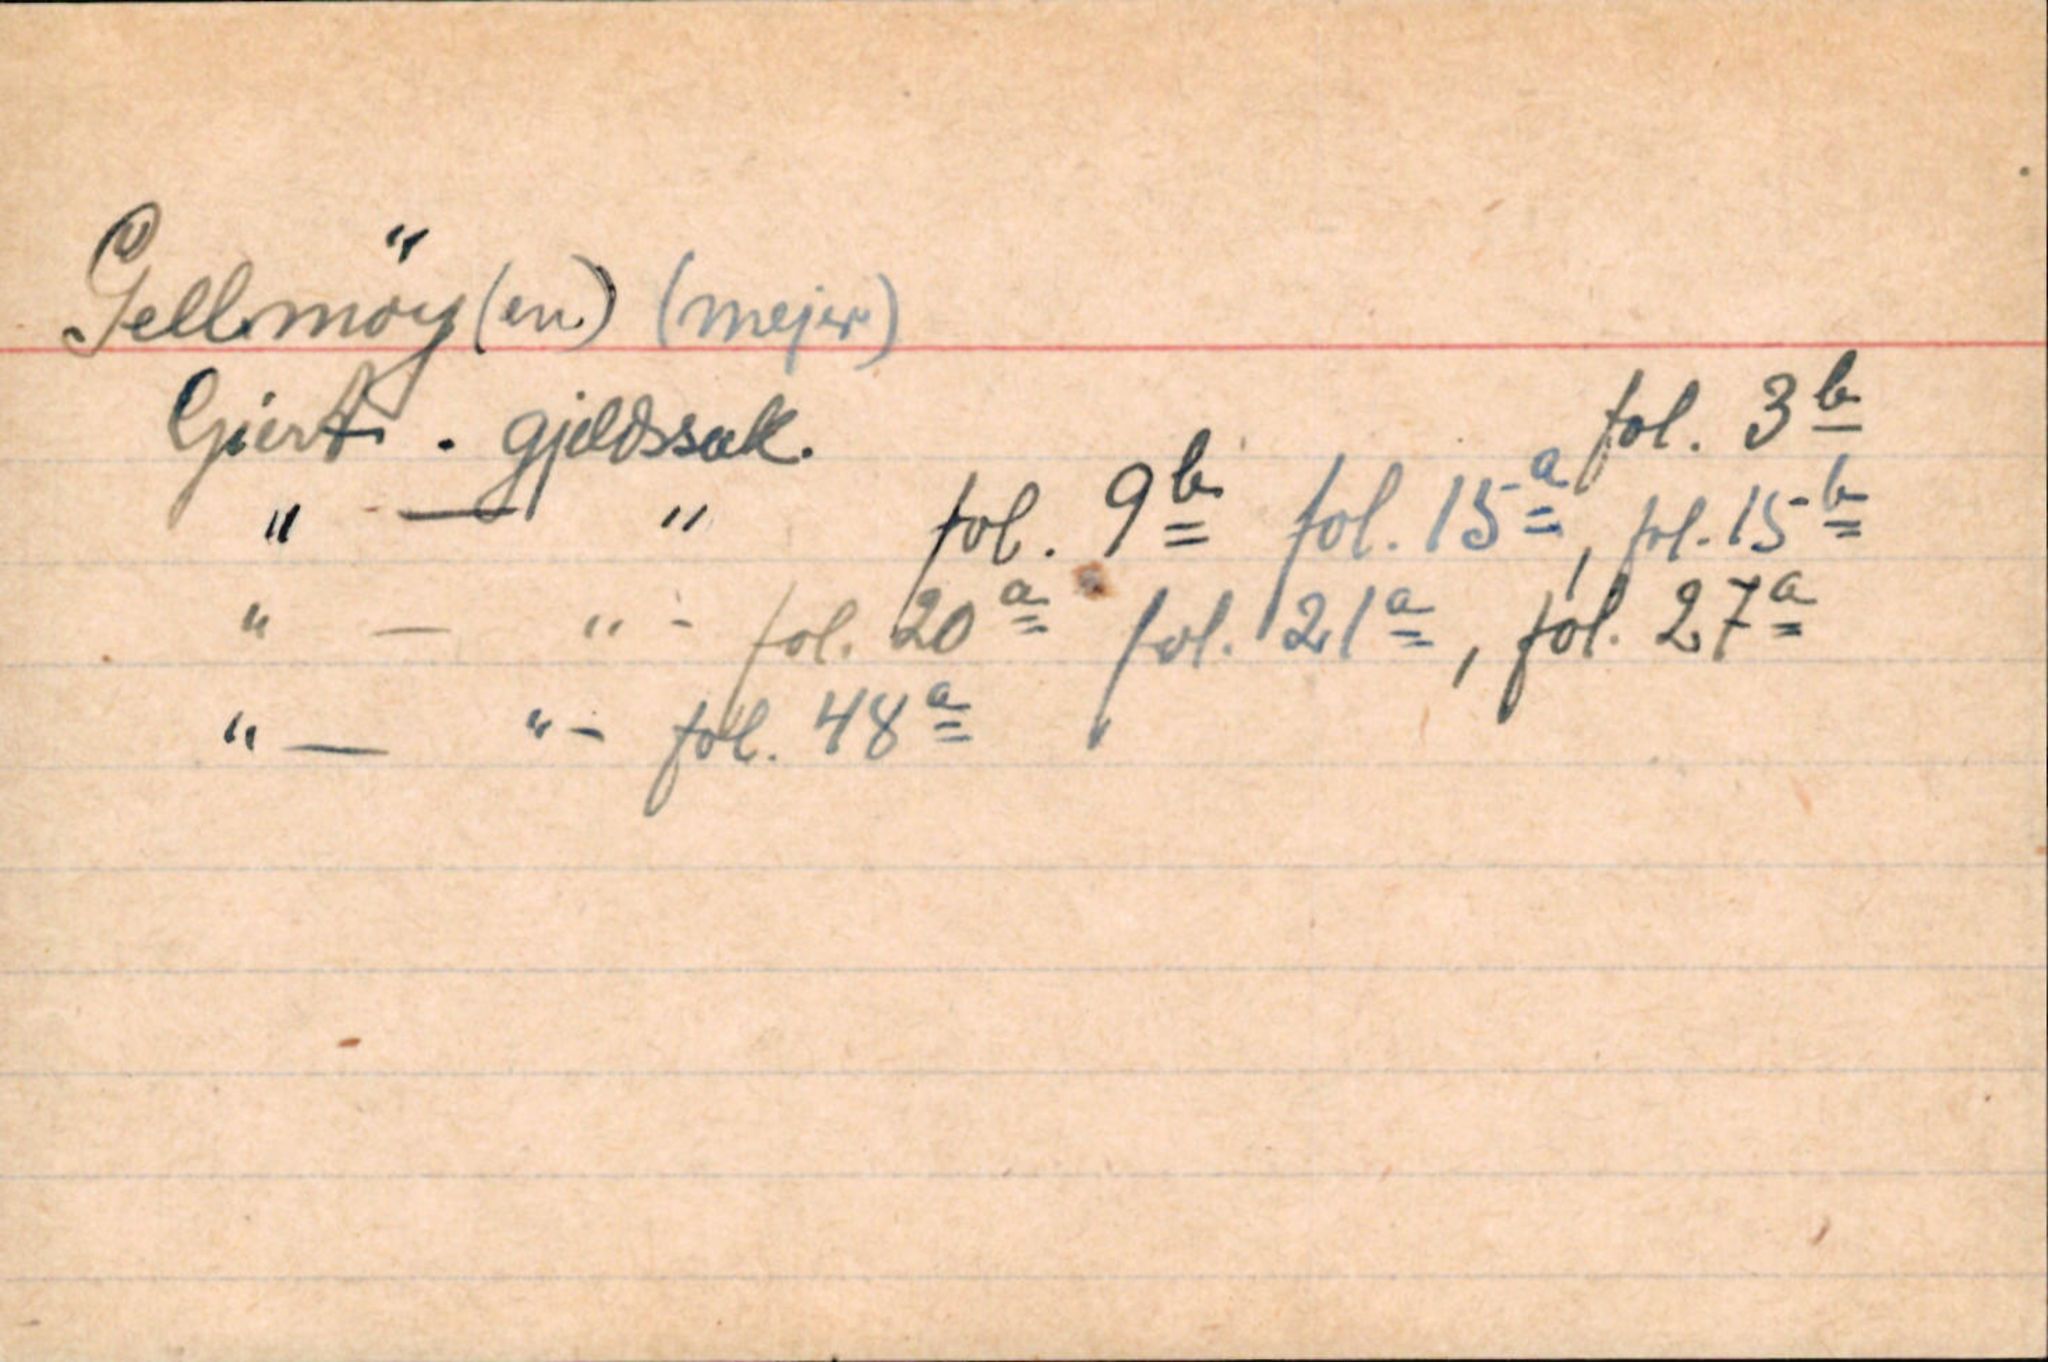 Gellmöy(en) (mejer)
Gjert . gjeldssak. fol. 3b
" — " fol. 9b fol. 15a, fol. 15b
" — " - fol. 20a fol. 21a, fol. 27a
" — " - fol. 48a